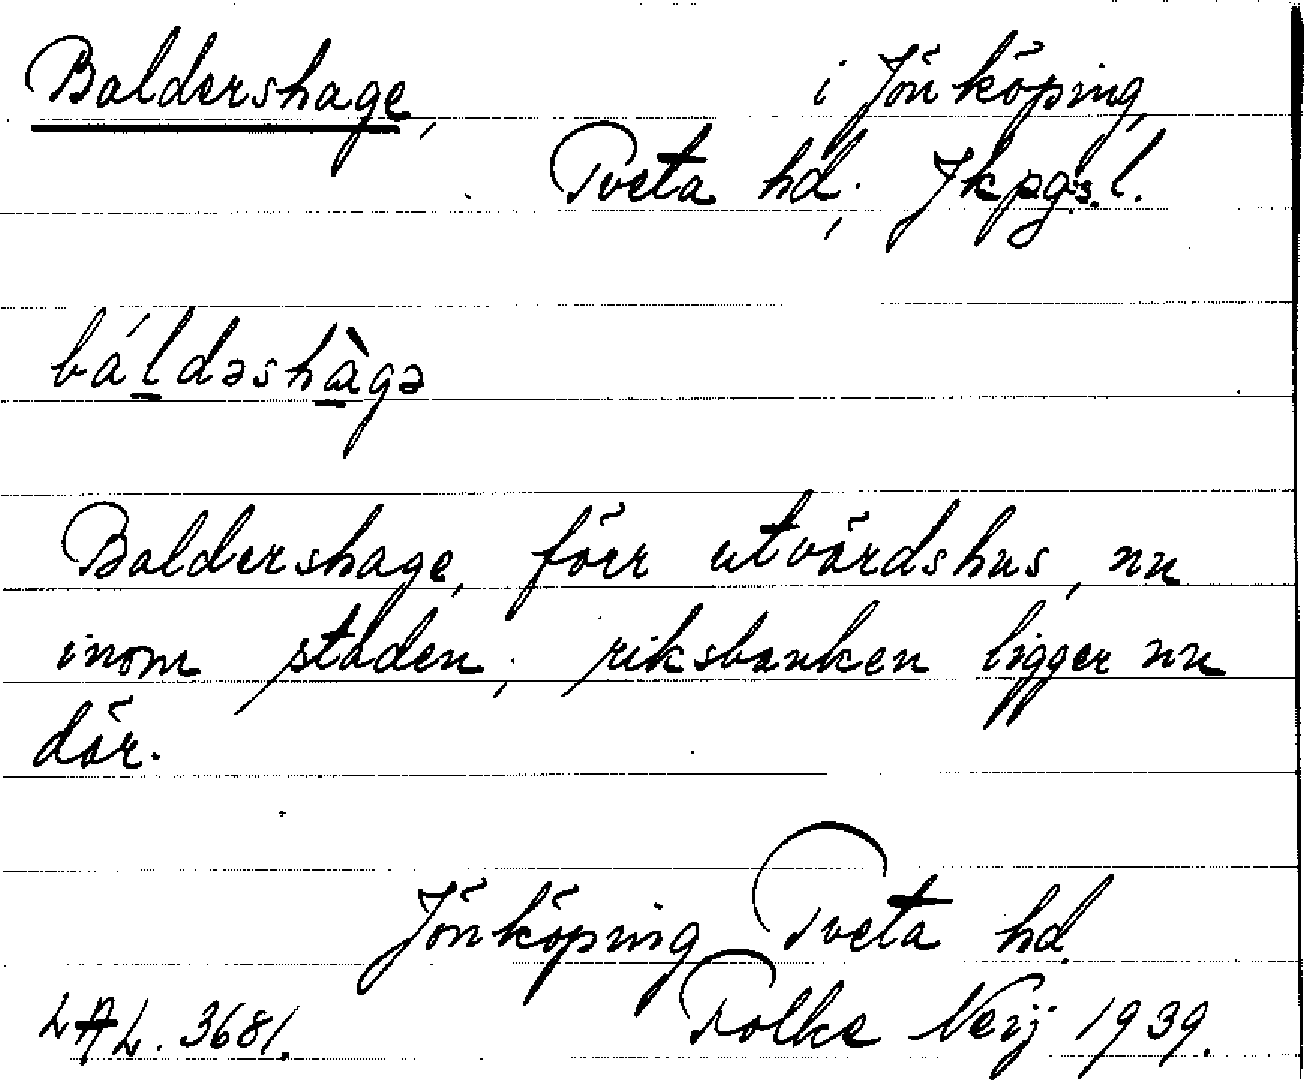 Baldershage, i Jönköping,
Tveta hd, Jkpgs. l.
bál̲dəshà̲gə
Baldershage, förr utvärdshus, nu
inom staden; riksbanken ligger nu
där.
Jönköping Tveta hd.
LAL. 3681. Folke Neij 1939.